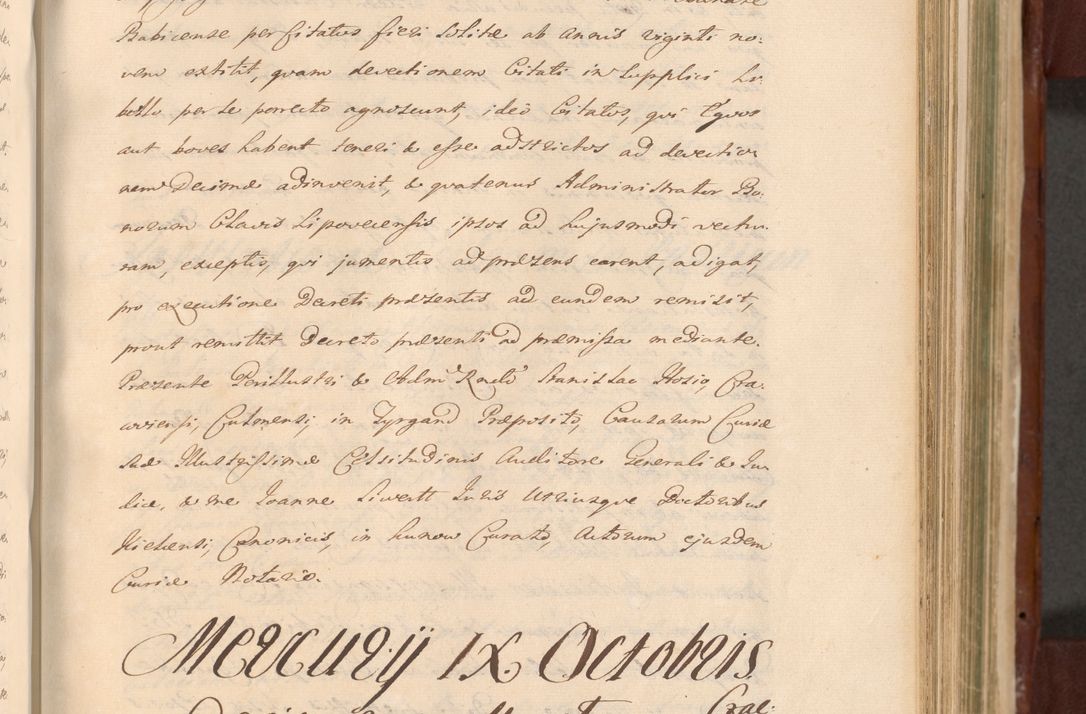 Babicense per Citatos fieri solite ab Annis viginti no:
vem extitit, quam devectionem Citati in Supplici Li:
bello per se porrecto agnoscunt, ideo Citatos, qui Equos
aut boves habent teneri & esse adstrictos ad devectio:
nem Decimæ adinvenit, & quatenus Administrator Bo:
norum Clavis Lipovecensis ipsos ad hujusmodi vectu:
ram, exceptis, qui jumentis ad præsens carent, adigat,
pro executione Decreti præsentis ad eundem remisit,
prout remittit Decreto præsenti ad præmissa mediante.
Præsente Perillustri & Adm: Rndo Stanislao Hosio, Cra:
coviensi, Culmensi, in Præposito, Causarum Curiæ
suæ Illustrissimæ Celsitudinis Auditore Generali & Ju:
dice, & me Joanne Siwertt Juris Utriusque Doctoribus
Kielcensi, Canonicis, in Curato, Actorum ejusdem
Curiæ Notario.
Mercurij IX Octobris
Crac: